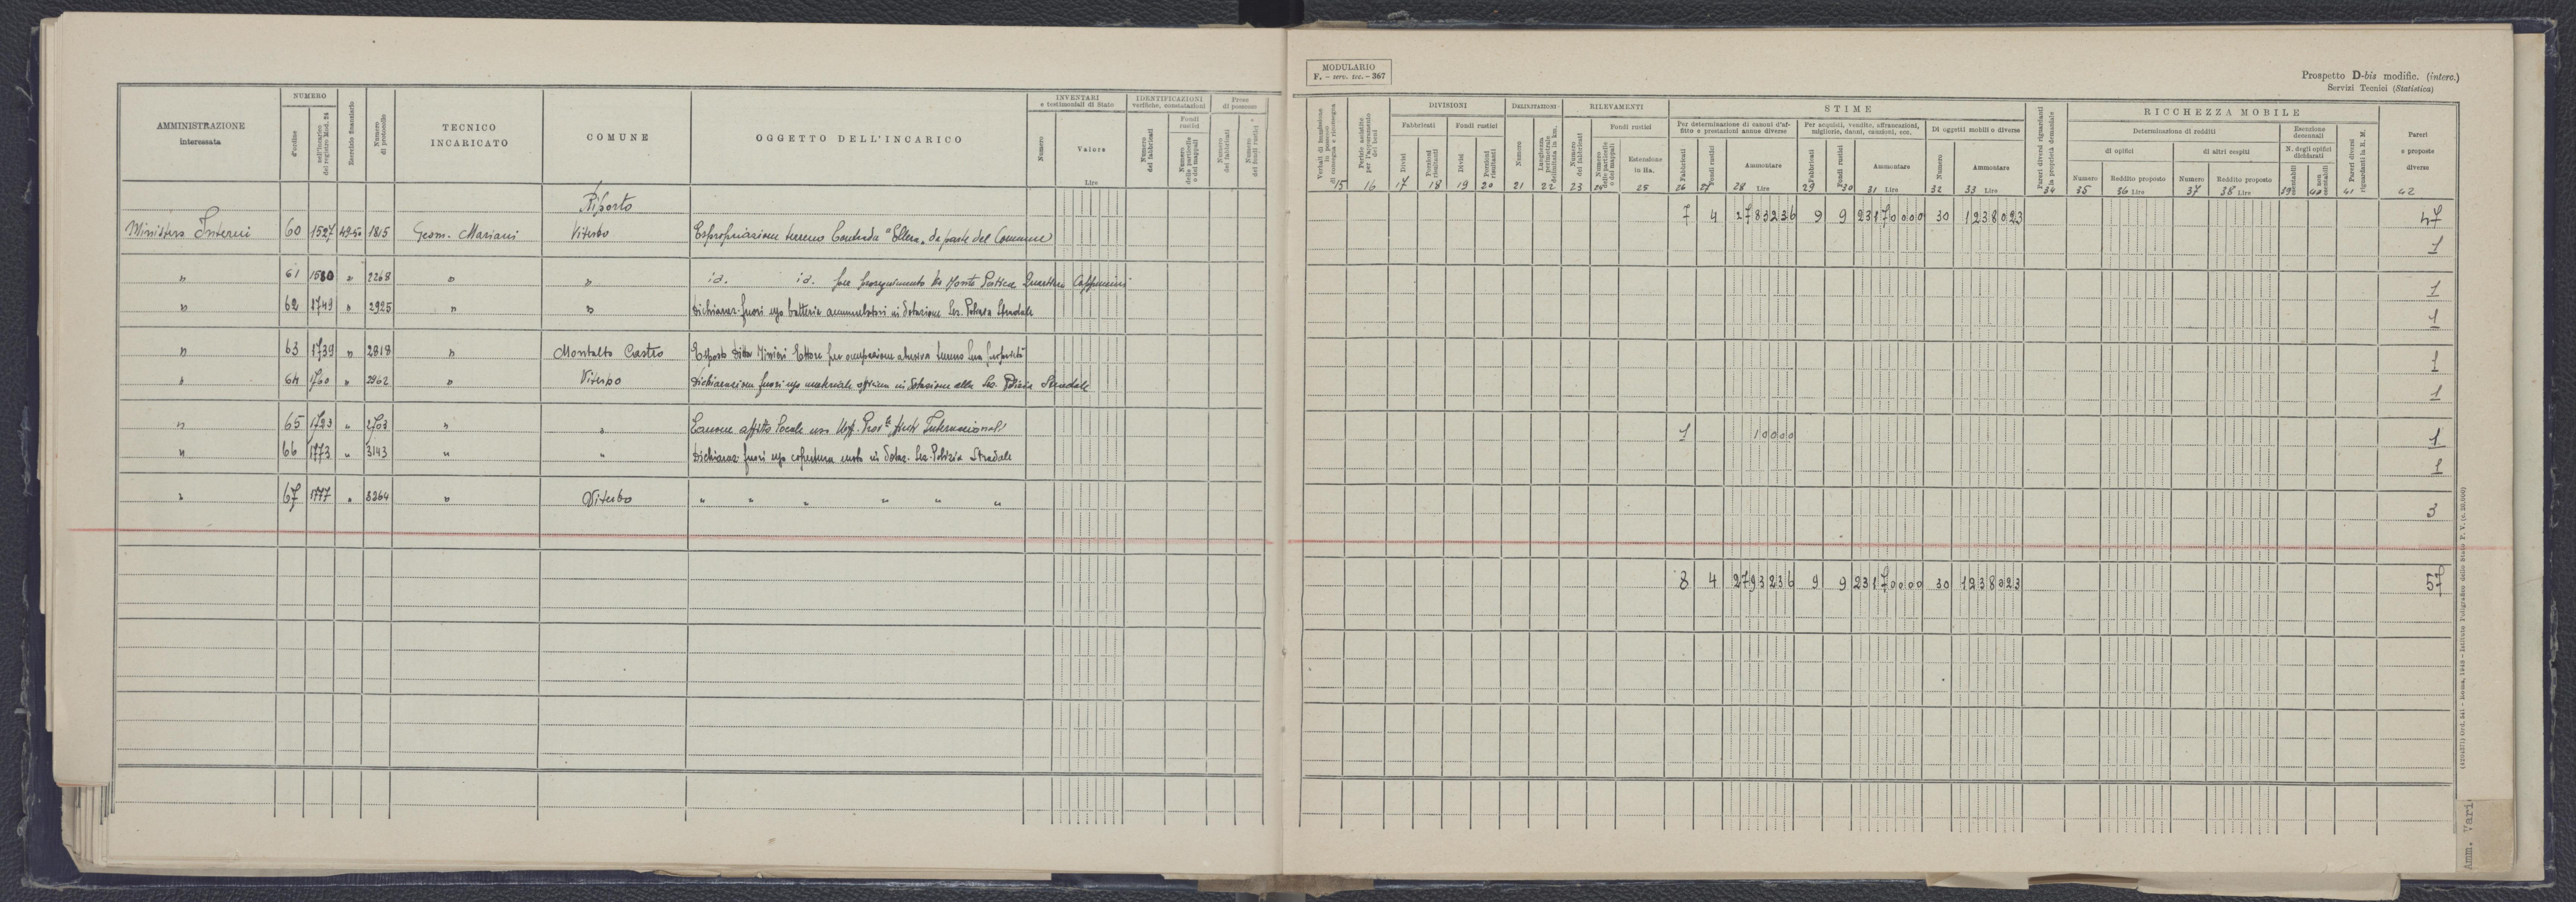 MODULARIO
F. - serv. tec. - 367
Prospetto D-bis modific. (interc.)
Servizi Tecnici (Statistica)
AMMINISTRAZIONE
interessata
NUMERO
d'ordine
dell'incarico
del registro Mod. 24
Esercizio finanziario
Numero
di protocollo
TECNICO
INCARICATO
COMUNE
OGGETTO DELL'INCARICO
INVENTARI
e testimoniali di Stato
Numero
Valore
Lire
IDENTIFICAZIONI
verifiche, constatazioni
Numero
dei fabbricati
Fondi
rustici
Numero
delle particelle
o dei mappali
Prese
di possesso
Numero
dei fabbricati
Numero
dei fondi rustici
Verbali di immissione
in possesso
di consegna e riconsegna
15
16
DIVISIONI
Fabbricati
Fondi rustici
Divisi
Porzioni
risultanti
Divisi
Porzioni
risultanti
17 18 19 20
DELIMITAZIONI
Numero
Lunghezza
perimetrale
delimitata in km.
21 22
RILEVAMENTI
Numero
dei fabbricati
Fondi rustici
Numero
delle particelle
o dei mappali
Estensione
in Ha.
23 24 25
STIME
Per determinazione di canoni d'af-
fitto e prestazioni annue diverse
Fabbricati
Fondi rustici
Ammontare
26 27 28 Lire
Per acquisti, vendite, affrancazioni,
migliorie, danni, cauzioni, ecc.
Fabbricati
Fondi rustici
Ammontare
29 30 31 Lire
Di oggetti mobili o diverse
Numero
Ammontare
32 33 Lire
Pareri diversi riguardanti
la proprietà demaniale
34
RICCHEZZA MOBILE
Determinazione di redditi
di opifici
Numero
Reddito proposto
35 36 Lire
di altri cespiti
Numero
Reddito proposto
37 38 Lire
Esenzione
decennali
N. degli opifici
dichiarati
esentabili
non
esentabili
39 40
Pareri diversi
riguardanti la R. M.
41
Pareri
e proposte
diverse
42
Riporto 7 4 2783236 9 9 23170000 30 1238023 47
Ministero Interni 60 1527 49-50 1815 Geom. Mariani Viterbo Espropriazione terreno Contrada "Ellera" da parte del Comune 1
" 61 1580 " 2268 " " id. id. per proseguimento Via Monte Quartiere Cappuccini 1
" 62 1749 " 2925 " " Dichiaraz. fuori uso batterie accumulatori in dotazione Sez. Polizia Stradale 1
" 63 1739 " 2818 " Montalto Castro Esposto Ettore per occupazione abusiva terreno sua proprietà 1
" 64 1760 " 2962 " Viterbo Dichiarazione fuori uso materiale officina in dotazione alla Sez. Polizia Stradale 1
" 65 1723 " 2703 " " Canone affitto locale uso Uff. Prov.le 1 10000 1
" 66 1773 " 3143 " " Dichiaraz. fuori uso copertura moto in dotaz. Sez. Polizia Stradale 1
" 67 1777 " 3264 " Viterbo " " " " " " 3
8 4 2793236 9 9 23170000 30 1238023 57
Amm. Vari